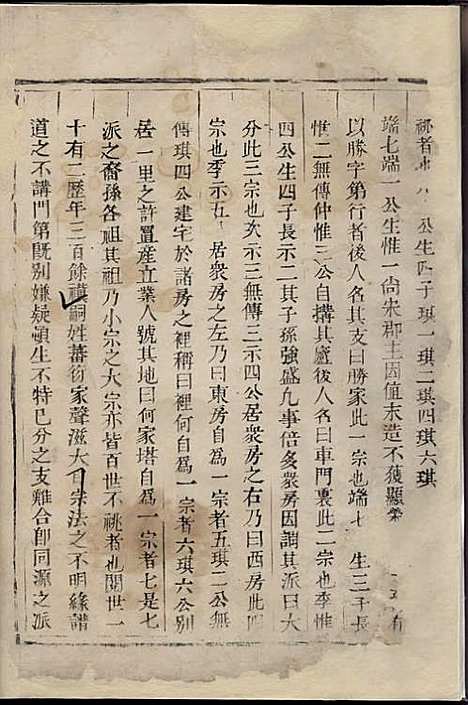 祧者也八 公生四子琪一琪二琪四琪六琪
端七端一公生惟一尚朱郡主因值末造不獲顯榮 有
以勝字第行者後人名其支曰勝家此一宗也端七 生三子長
惟二無傳仲惟三公自搆其廬後人名曰車門裏此二宗也季惟
四公生四子長示二其子孫強盛凡事倍多衆房因謂其派曰大
分此三宗也次示三無傳三示四公居衆房之右乃曰西房此四
宗也季示五 居衆房之左乃曰東房自為一宗者五琪二公無
傳琪四公建宅於諸房之裡稱曰裡何自為一宗者六琪六公別
居一里之許置産立業人號其地曰何家塔自為一宗者七是七
派之裔孫各祖其祖乃小宗之大宗亦皆百世不祧者也閱世一
十有二歷年三百餘禩嗣姓蕃衍家聲滋大 宗法之不明緣譜
道之不講門第既别嫌疑頓生不特已分之支難合卽同源之派